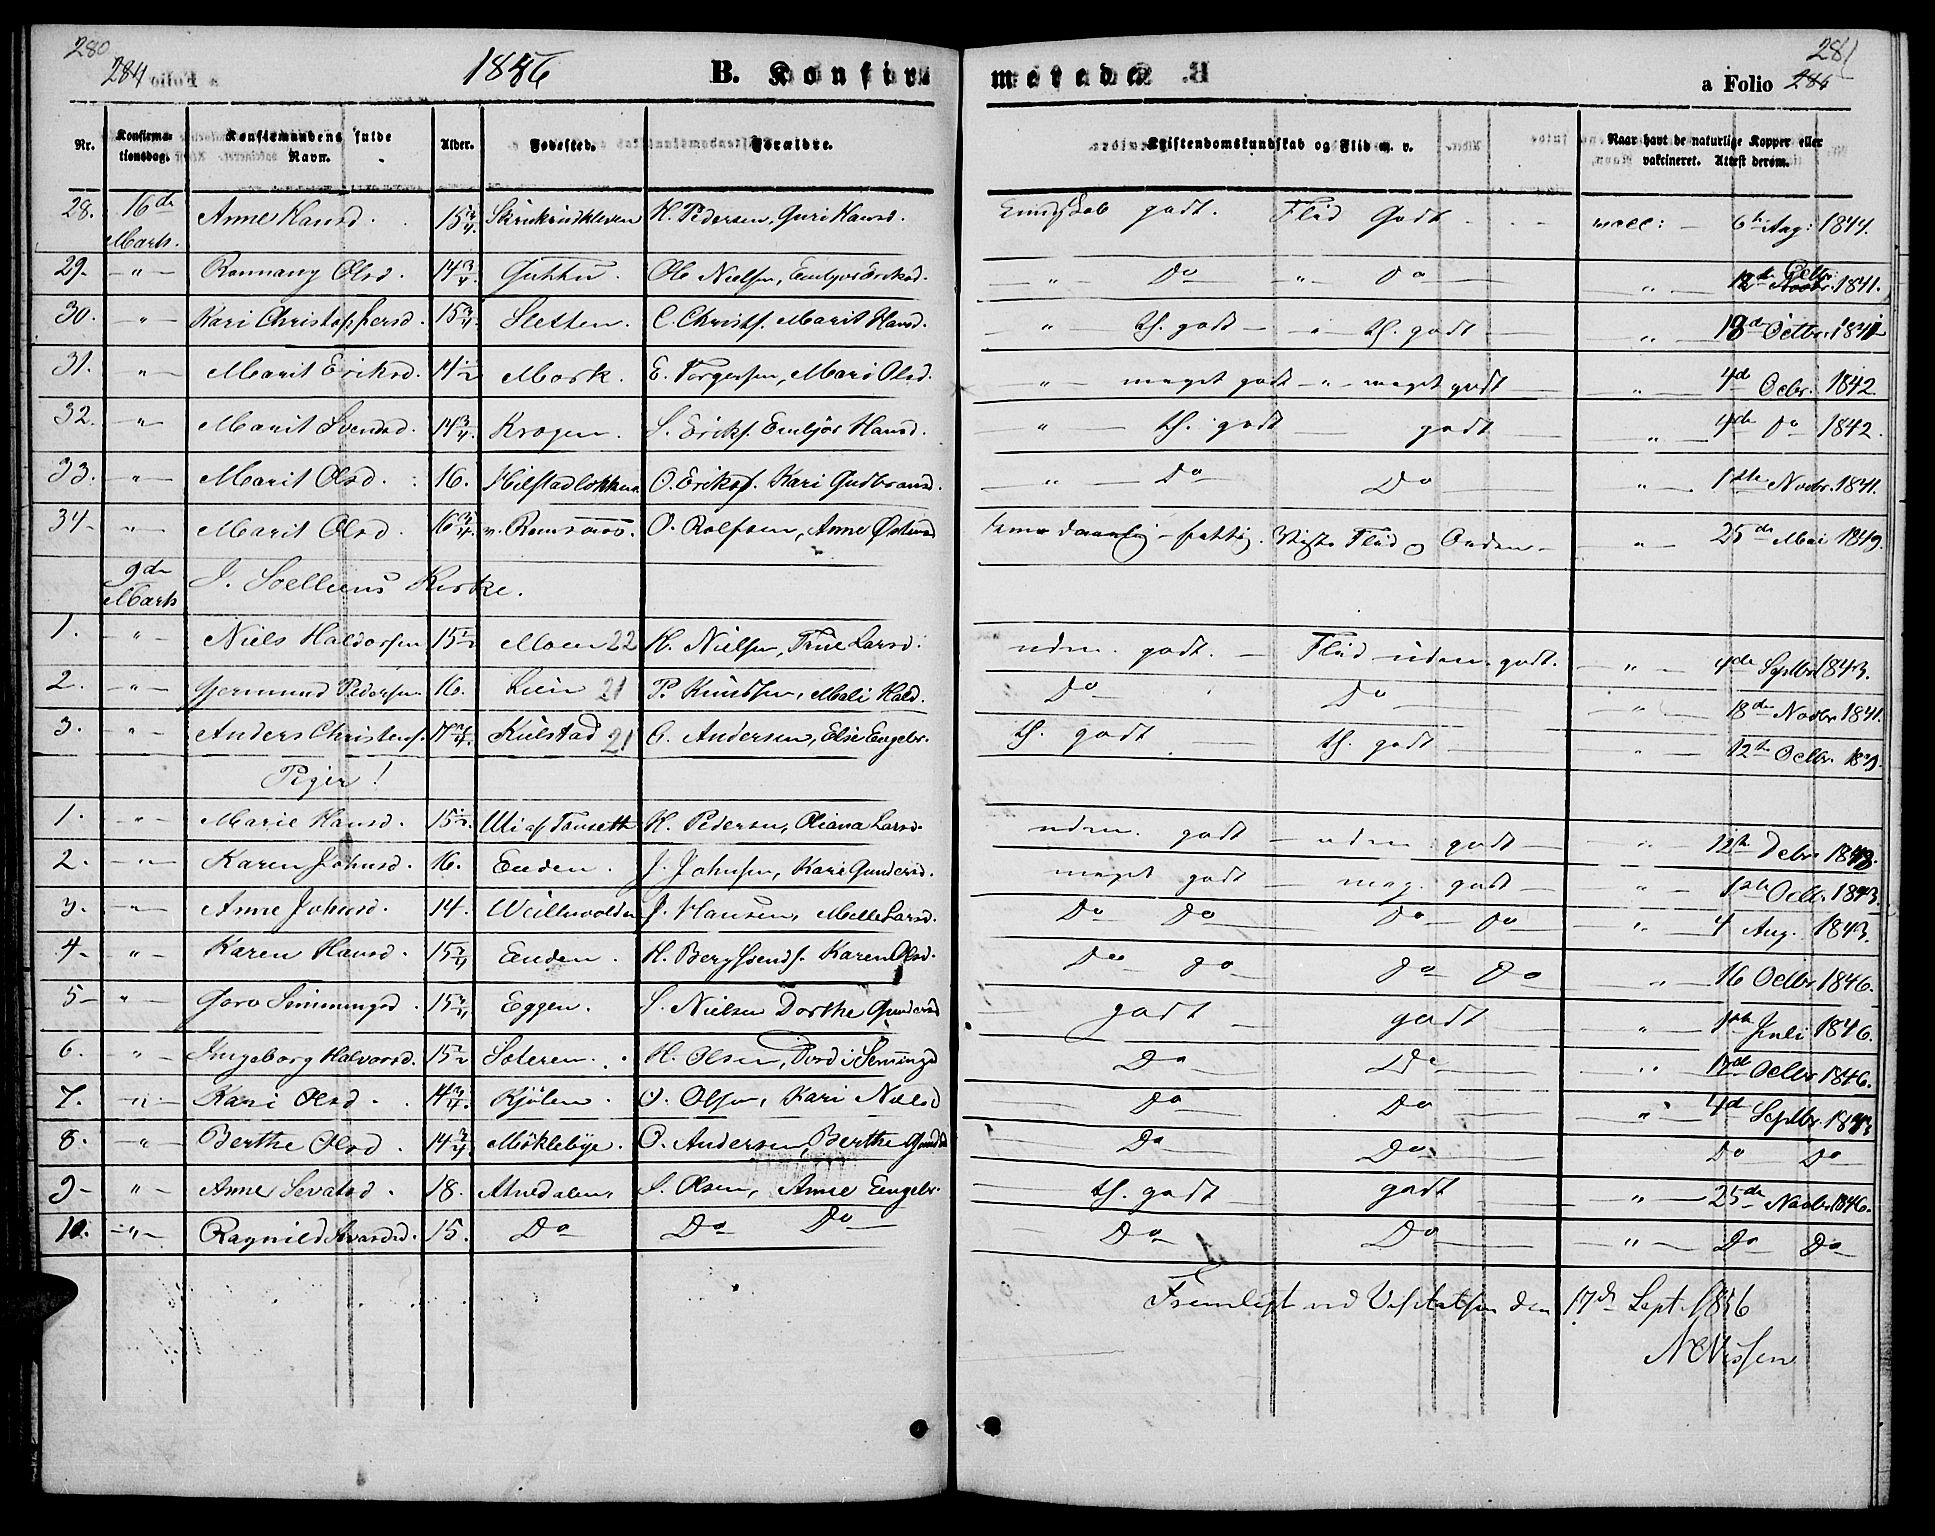 280
284 1856 B. Konfirmerede a Folio 281
286
Nr. Konfirmationsdag. Konfirmandens fulde Navn. Alder. Fødested. Forældre. Kristendomskundskab og Flid m. v. Naar havt de naturlige Kopper eller vakcineret. Attest derom.
28. 16de Marts. Anne Hansd. 15 3/4. H. Pedersen, Guri Hansd. Kundskab godt. Flid Godt vacc: 6te Aug: 1847.
29. " Rannany Olsd. 14 3/4 Ole Nielsen, Do " Do " 12te Octbr. 1841.
30. " Kari Christophersd. 15 3/4. Sletten. C. Christf. Marit Hansd. " th. godt " th. godt " 18de Octbr. 1841
31. " Marit Eriksd. 14 1/2 Mork. E. Torgersen, Mari Olsd. " meget godt " meget godt " 4de Ocbr. 1842.
32. " Marit Svendsd. 14 3/4 Krogen. S. Eriks. Embjør Hansd. " th. godt godt " 4de do 1842.
33. " Marit Olsd. 16. Kilstadløkken O. Eriks. Kari Gudbransd. " Do Do " 1ste Novbr. 1841.
34 " Marit Olsd. 16 3/4. O. Rolfsen, Anne Østensd Flid og Orden " 25de Mai 1849.
9de Marts I. Solliens Kirke.
1. " Niels Haldorsen 15 1/2 Moen 22 H. Nielsen, Trine Larsd. udm. godt. Flid udm. godt. " 4de Septbr 1843.
2. " Gjermund Pedersen 16. Lien 21 P. Knudsen, Mali Hald. Do Do " 18de Novbr 1841.
3. " Anders Christens. 17 3/4. Kulstad 21 C. Andersen, Else Engebr. th. godt th. godt " 12te Octbr.
Piger!
1. " Marie Hansd. 15 1/2. Uti af Tanseth H. Pedersen, Oliana Larsd. udm. godt udm. godt " 12te Debr 1843.
2. " Karen Johnsd. 16. Enden. J. Johnsen, Kari Gundersd. meget godt meg. godt " 1ste Octbr. 1843.
3. " Anne Johnsd. 14. J. Hansen, Mille Larsd. Do Do Do Do " 4 Aug. 1843.
4. " Karen Hansd. 15 3/4 Enden. H. Bergsvends. Karen Olsd. Do do do do " 16 Octbr 1846.
5 " Goro Simmingsd. 15 3/4 Eggen. S. Nielsen Dorthe Gundersd godt godt " 1ste Juli 1846.
6. " Ingeborg Halvorsd. 15 1/2 Soteren. H. Olsen, Pordi Semingd Do Do " Octbr 1846.
7. " Kari Olsd. 14 3/4. Kjølen. O. Olsen, Kari Nielsd Do Do " 4de Septbr. 1843
8. " Berthe Olsd. 14 3/4 Møklebye. O. Andersen, Berthe Do Do Do Do
9 " Anne Sevatsd. 18. Atnedalen S. Olsen, Anne Engebr. th. godt godt " 25de Novbr 1846.
10. " Ragnild 15. Do Do Do Do Do " Do Do
Fremlagt ved Visitatsen den 17de Sept. 1856
N. Nissen